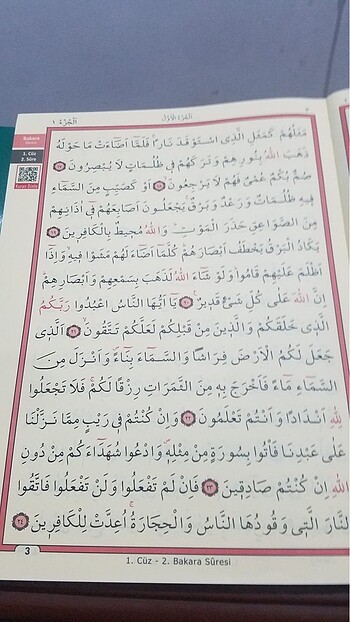 الجزء ١
القرء الاول
Bakara
1. Cüz
2. Sûre
مَثَلُهُمْ كَمَثَلِ الَّذِى اسْتَوْقَدَ نَارًا فَلَمَّا اَضَاءَتْ مَا حَوْلَهُ
ذَهَبَ اللهُ بِنُورِهِمْ وَتَرَكَهُمْ فِى ظُلُمَاتٍ لَا يُبْصِرُونَ ١٧
صُمٌّ بُكْمٌ عُمْىٌ فَهُمْ لَا يَرْجِعُونَ ١٨ اَوْ كَصَيِّبٍ مِنَ السَّمَاءِ
فِيهِ ظُلُمَاتٌ وَرَعْدٌ وَبَرْقٌ يَجْعَلُونَ اَصَابِعَهُمْ فِى اٰذَانِهِمْ
مِنَ الصَّوَاعِقِ حَذَرَ الْمَوْتِ وَاللهُ مُحِيطٌ بِالْكَافِرِينَ ١٩
يَكَادُ الْبَرْقُ يَخْطَفُ اَبْصَارَهُمْ كُلَّمَا اَضَاءَ لَهُمْ مَشَوْا فِيهِ وَاِذَا
اَظْلَمَ عَلَيْهِمْ قَامُوا وَلَوْ شَاءَ اللهُ لَذَهَبَ بِسَمْعِهِمْ وَاَبْصَارِهِمْ
اِنَّ اللهَ عَلٰى كُلِّ شَىْءٍ قَدِيرٌ ٢٠ يَا اَيُّهَا النَّاسُ اعْبُدُوا رَبَّكُمُ
الَّذِى خَلَقَكُمْ وَالَّذِينَ مِنْ قَبْلِكُمْ لَعَلَّكُمْ تَتَّقُونَ ٢١ اَلَّذِى
جَعَلَ لَكُمُ الْاَرْضَ فِرَاشًا وَالسَّمَاءَ بِنَاءً وَاَنْزَلَ مِنَ
السَّمَاءِ مَاءً فَاَخْرَجَ بِهِ مِنَ الثَّمَرَاتِ رِزْقًا لَكُمْ فَلَا تَجْعَلُوا
لِلهِ اَنْدَادًا وَاَنْتُمْ تَعْلَمُونَ ٢٢ وَاِنْ كُنْتُمْ فِى رَيْبٍ مِمَّا نَزَّلْنَا
عَلٰى عَبْدِنَا فَأْتُوا بِسُورَةٍ مِنْ مِثْلِهِ وَادْعُوا شُهَدَاءَكُمْ مِنْ دُونِ
اللهِ اِنْ كُنْتُمْ صَادِقِينَ ٢٣ فَاِنْ لَمْ تَفْعَلُوا وَلَنْ تَفْعَلُوا فَاتَّقُوا
النَّارَ الَّتِى وَقُودُهَا النَّاسُ وَالْحِجَارَةُ اُعِدَّتْ لِلْكَافِرِينَ ٢٤
3
1. Cüz - 2. Bakara Sûresi